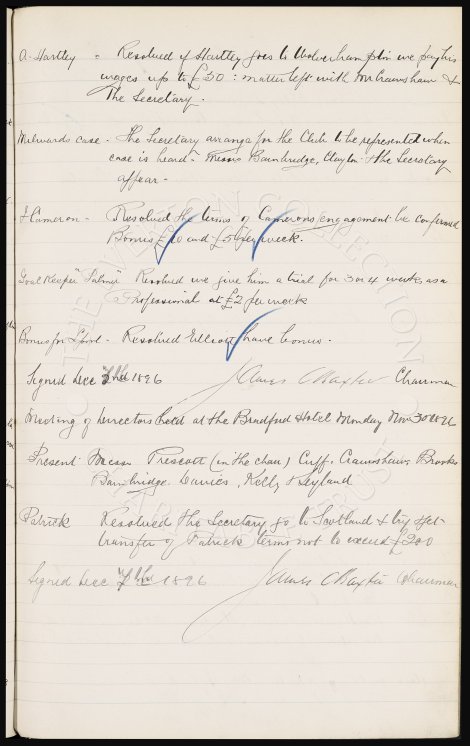 A. Hartley - Resolved if Hartley goes to Wolverhampton we pay his
wages up to £30: matter left with Mr Crawshaw &
The Secretary.
Milwards case - The Secretary arrange for the Club to be represented when
case is heard. Messrs Bainbridge, Clayton & the Secretary
appear -
J Cameron - Resolved the terms of Camerons engagement be confirmed
Bonus £10 and £3 per week.
Goal Keeper "Palmer" Resolved we give him a trial for 3 or 4 weeks as a
Professional at £2 per week
Bonus for Lpool. - Resolved Elliott have bonus.
Signed Dec 7th 1896 James C Baxter Chairman
Meeting of Directors held at the Bradford Hotel Monday Nov 30 1896
Present Messrs Prescott (in the chair) Cuff, Crawshaw, Brooks
Bainbridge, Davies, Kelly & Leyland
Patrick Resolved The Secretary go to Scotland & try & get
transfer of Patrick terms not to exceed £200
Signed Dec 7th 1896 James C Baxter Chairman
THE EVERTON COLLECTION